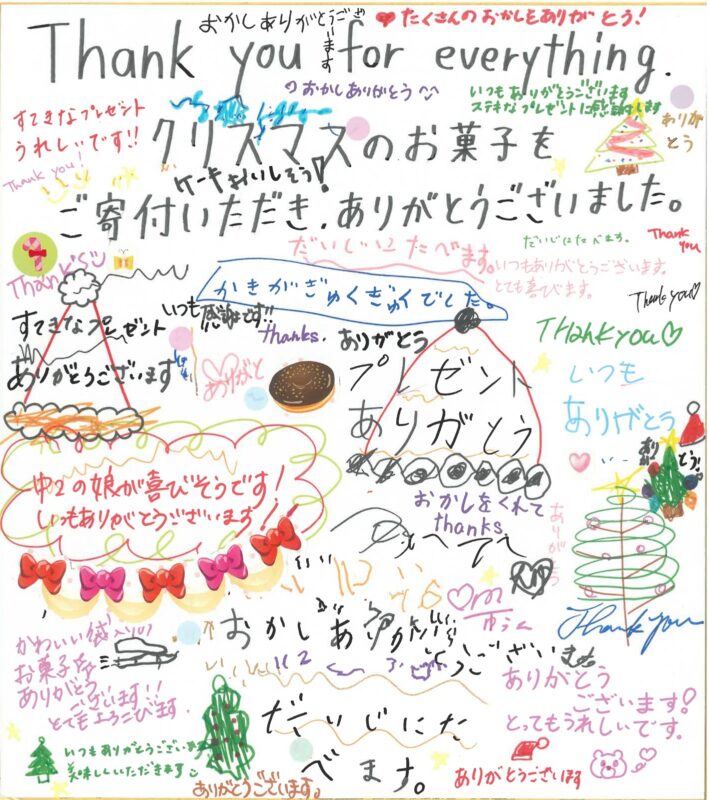 おかしありがとうございます
❤たくさんのおかしをありがとう!
Thank you for everything.
おかしありがとう
いつもありがとうございます
ステキなプレゼントに感謝します
すてきなプレゼント
うれしいです!!
ありがとう
Thank you!
クリスマスのお菓子を
ケーキおいしそう!
ご寄付いただき、ありがとうございました。
だいじにたべます。
だいじにたべます。
Thank you
Thank's
いつもありがとうございます。
とても喜びます。
かきがぎゅくぎゅくでした。
Thank you♡
すてきなプレゼント
ありがとうございます
いつも感謝です!!
thanks.
ありがとう
THank you♡
ありがと
プレゼント
ありがとう
いつも
ありがとう
ありがとう!
中2の娘が喜びそうです!
いつもありがとうございます!!
おかしをくれて
thanks
ありがとう
おかしあ
ゆうく
Thank you
かわいい袋入りの
お菓子
ありがとう
ございます!!
とてもよろこびます.
ありがとう
ございます!
とってもうれしいです。
だいじにた
べます。
いつもありがとうございます
美味しくいただきます
ありがとうございます。
ありがとうございます